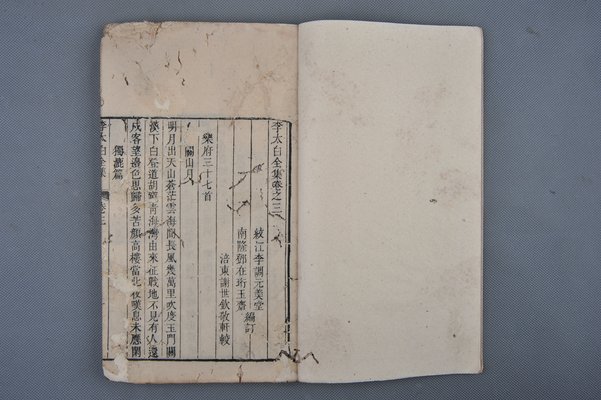 李太白全集卷之三
紋江李調元美堂
南隆鄧在珩玉齋 編訂
涪東謝世欽敬軒較
樂府三十七首
關山月
明月出天山蒼茫雲海間長風幾萬里吹度玉門關
漢下白登道胡窺青海灣由來征戰地不見有人還
戍客望邊色思歸多苦顏高樓當此夜嘆息未應閒
獨漉篇
李太白全集 卷三